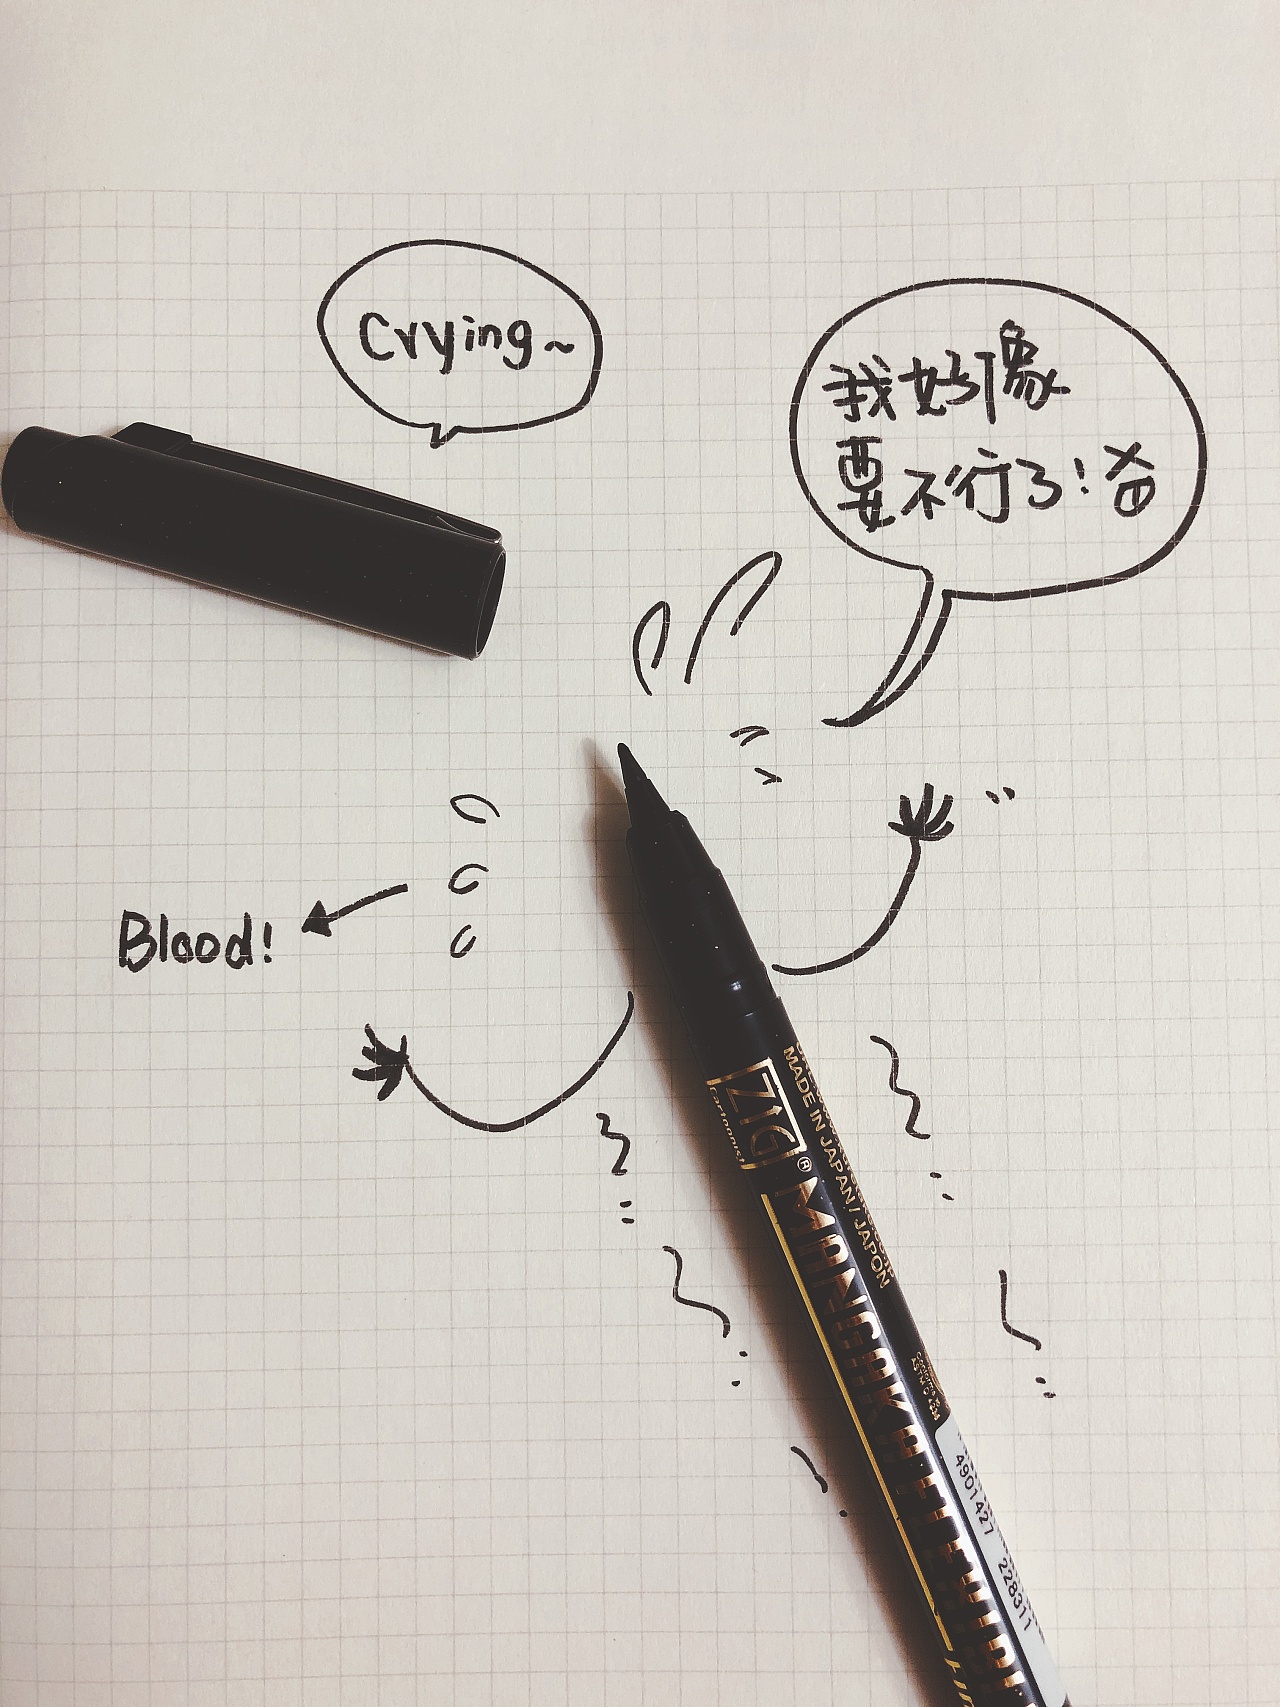 Crying~
我好像
要不行了!
Blood!
ZIG
Cartoonist
MADE IN JAPAN / JAPON
4901427 228311